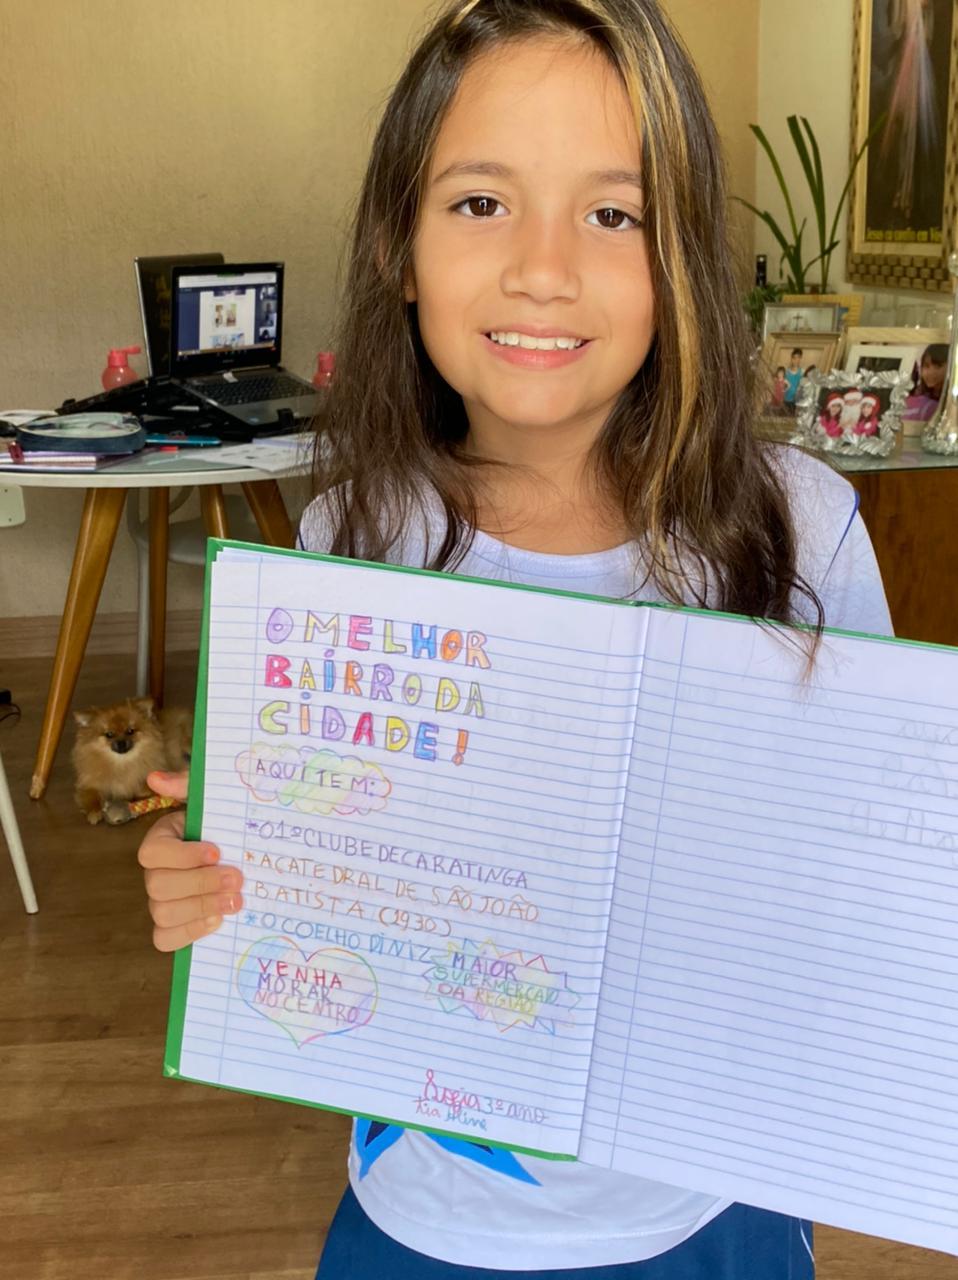 O MELHOR
BAIRRO DA
CIDADE!
AQUI TEM:
*O 1º CLUBE DE CARATINGA
*A CATEDRAL DE SÃO JOÃO
BATISTA (1930)
*O COELHO DINIZ
MAIOR
SUPERMERCADO
DA REGIÃO
VENHA
MORAR
NO CENTRO
Sofia 3º ano
tia Aline
Jesus eu confio em Vós